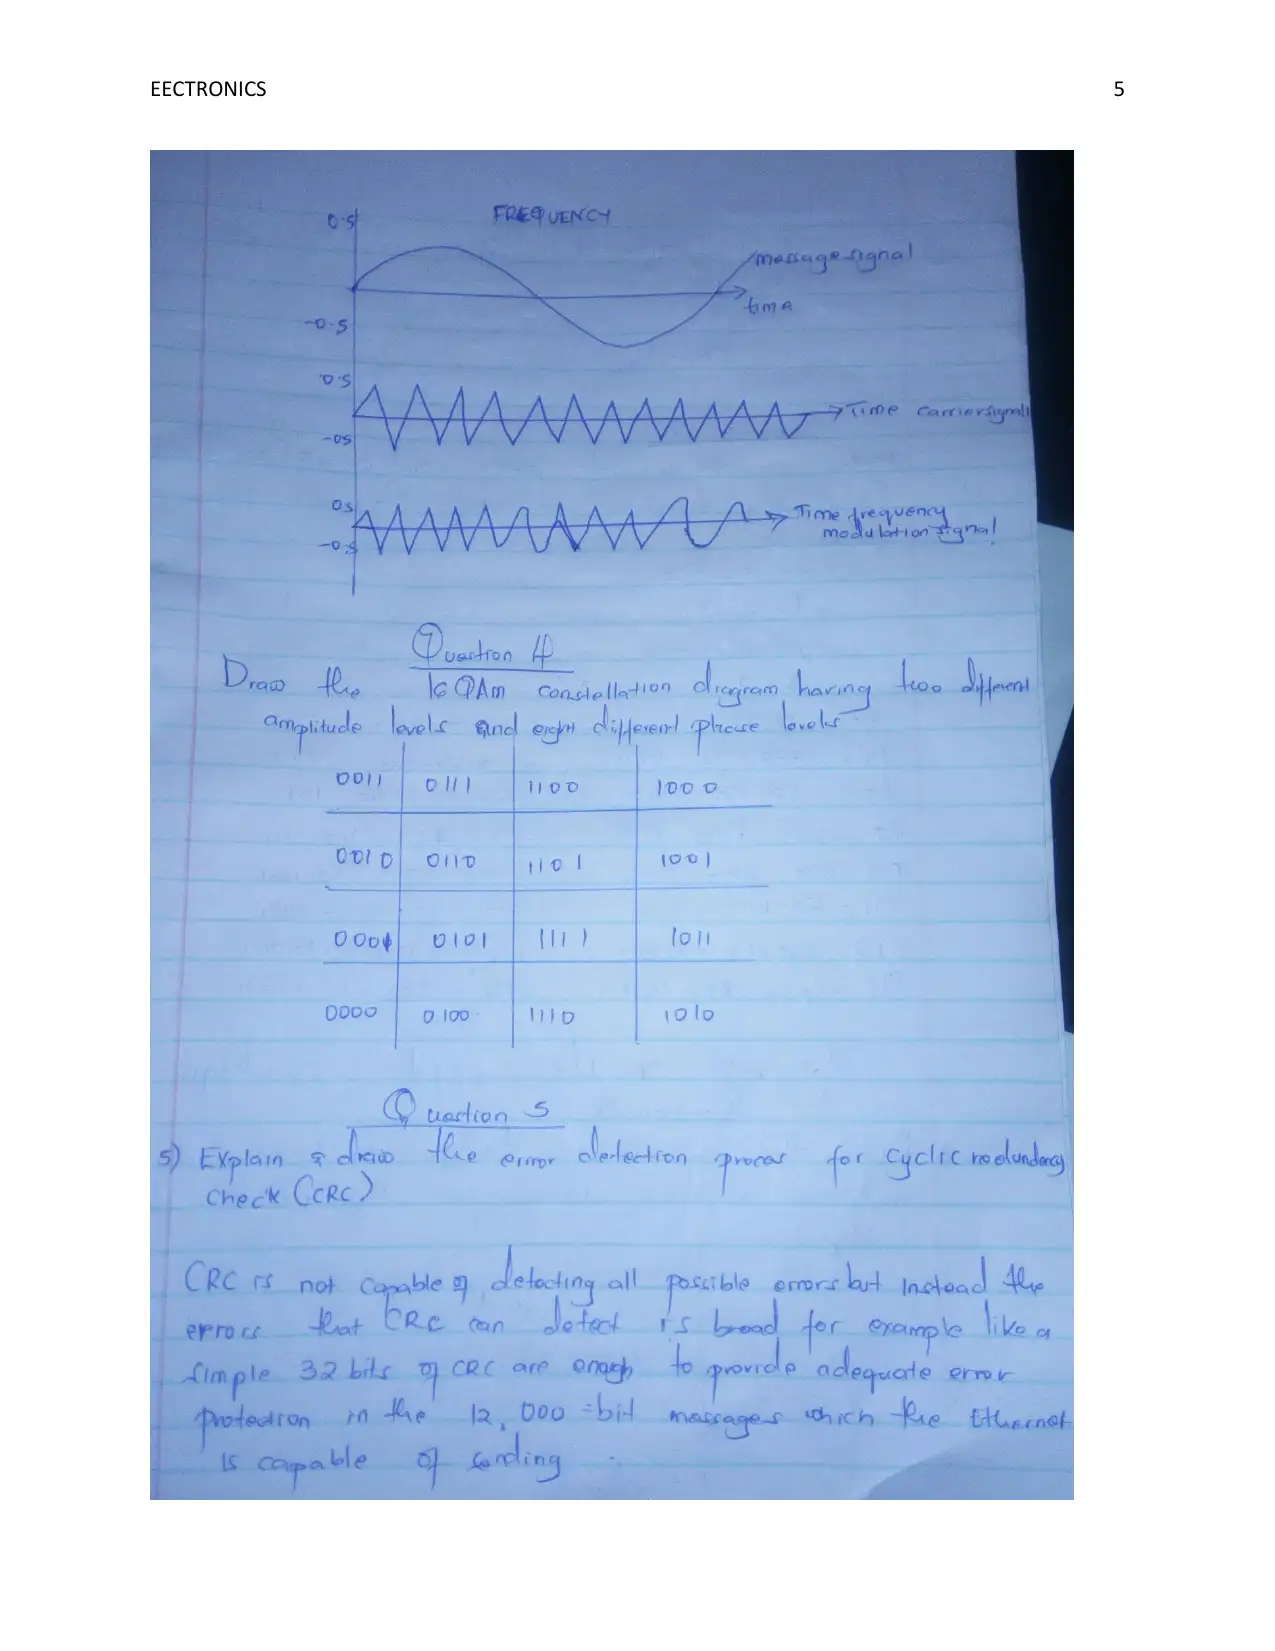 EECTRONICS 5
0.5 FREQUENCY
message signal
time
-0.5
0.5
Time carrier signal
-05
05
Time frequency
modulation signal
-0.5
Question 4
Draw the 16 QAm constellation diagram having two different
amplitude levels and eight different phase levels
0011 0111 1100 1000
0010 0110 1101 1001
0001 0101 1111 1011
0000 0100 1110 1010
Question 5
5) Explain & draw the error detection proces for cyclic redundancy
check (CRC)
CRC is not capable of detecting all possible errors but instead the
errors that CRC can detect is broad for example like a
simple 32 bits of CRC are enough to provide adequate error
protection in the 12,000-bit messages which the Ethernet
is capable of sending.